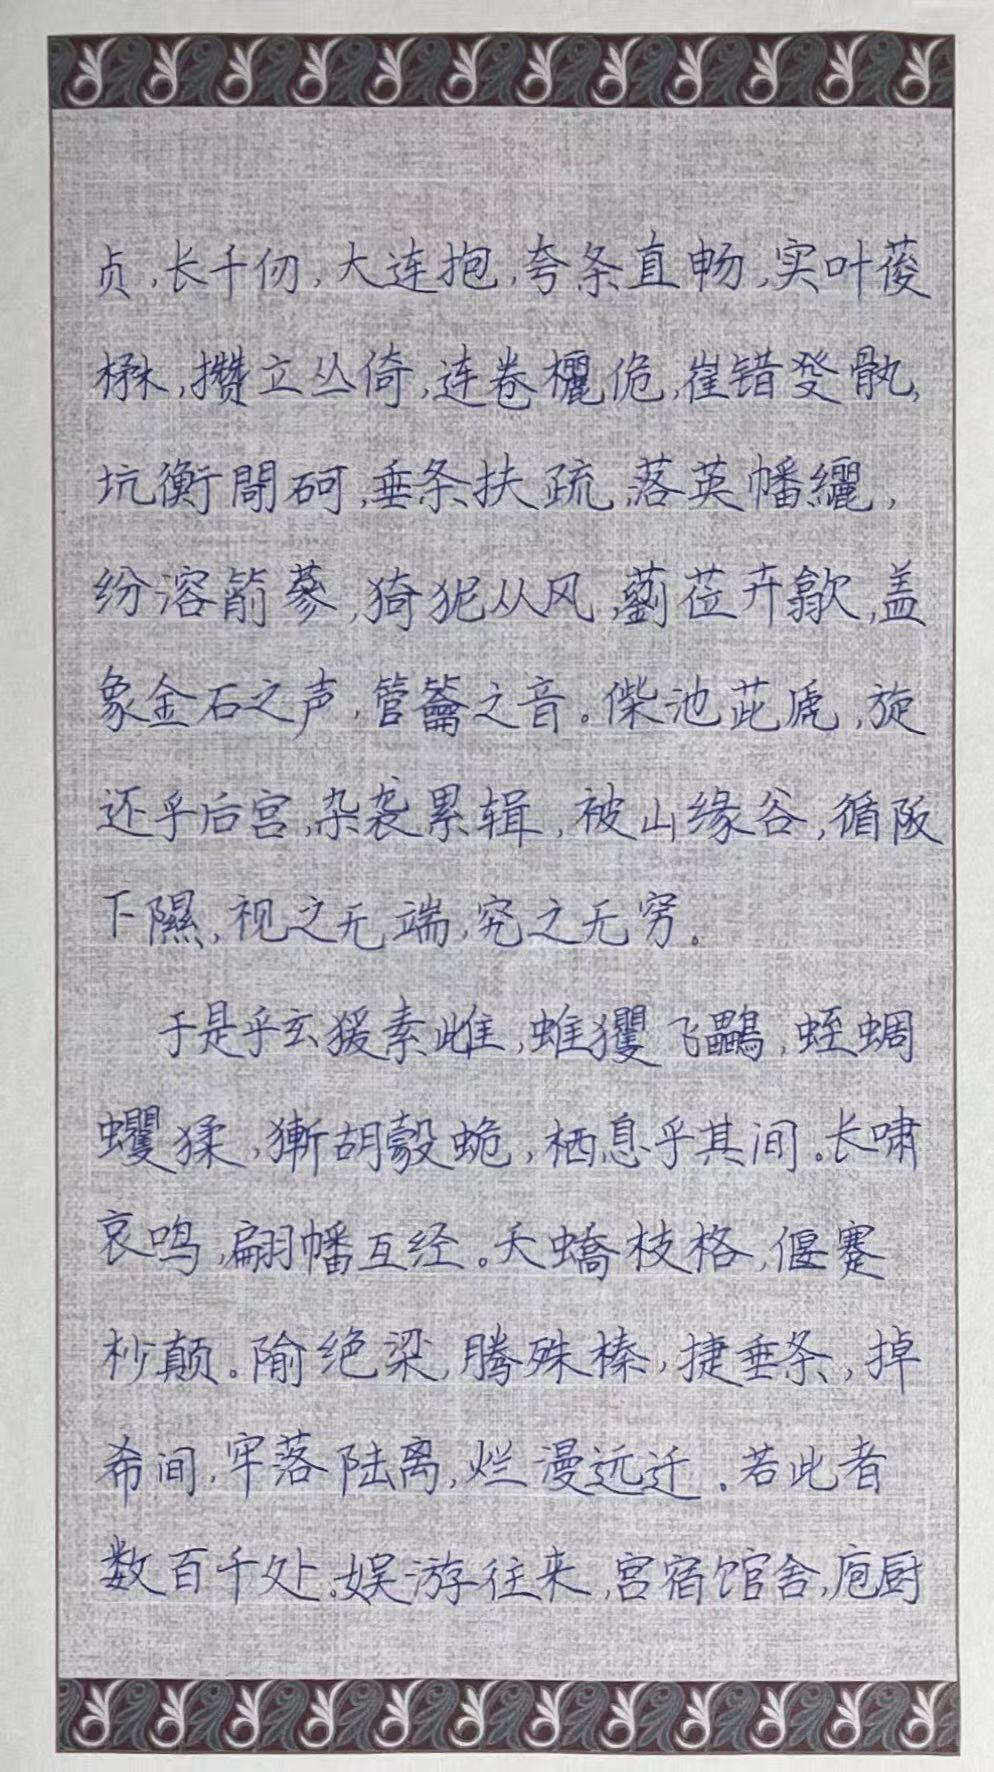 贞,长千仞,大连抱,夸条直畅,实叶葰
楙,攒立丛倚,连卷欐佹,崔错癹骫,
坑衡閜砢,垂条扶疏,落英幡纚,
纷溶箾蔘,猗狔从风,藰莅卉歙,盖
象金石之声,管籥之音。偨池茈虒,旋
还乎后宫,杂袭累辑,被山缘谷,循阪
下隰,视之无端,究之无穷。
于是乎玄猨素雌,蜼玃飞鸓,蛭蜩
蠼猱,獑胡豰蛫,栖息乎其间。长啸
哀鸣,翩幡互经。夭蟜枝格,偃蹇
杪颠。隃绝梁,腾殊榛,捷垂条,掉
希间,牢落陆离,烂漫远迁。若此者
数百千处。娱游往来,宫宿馆舍,庖厨